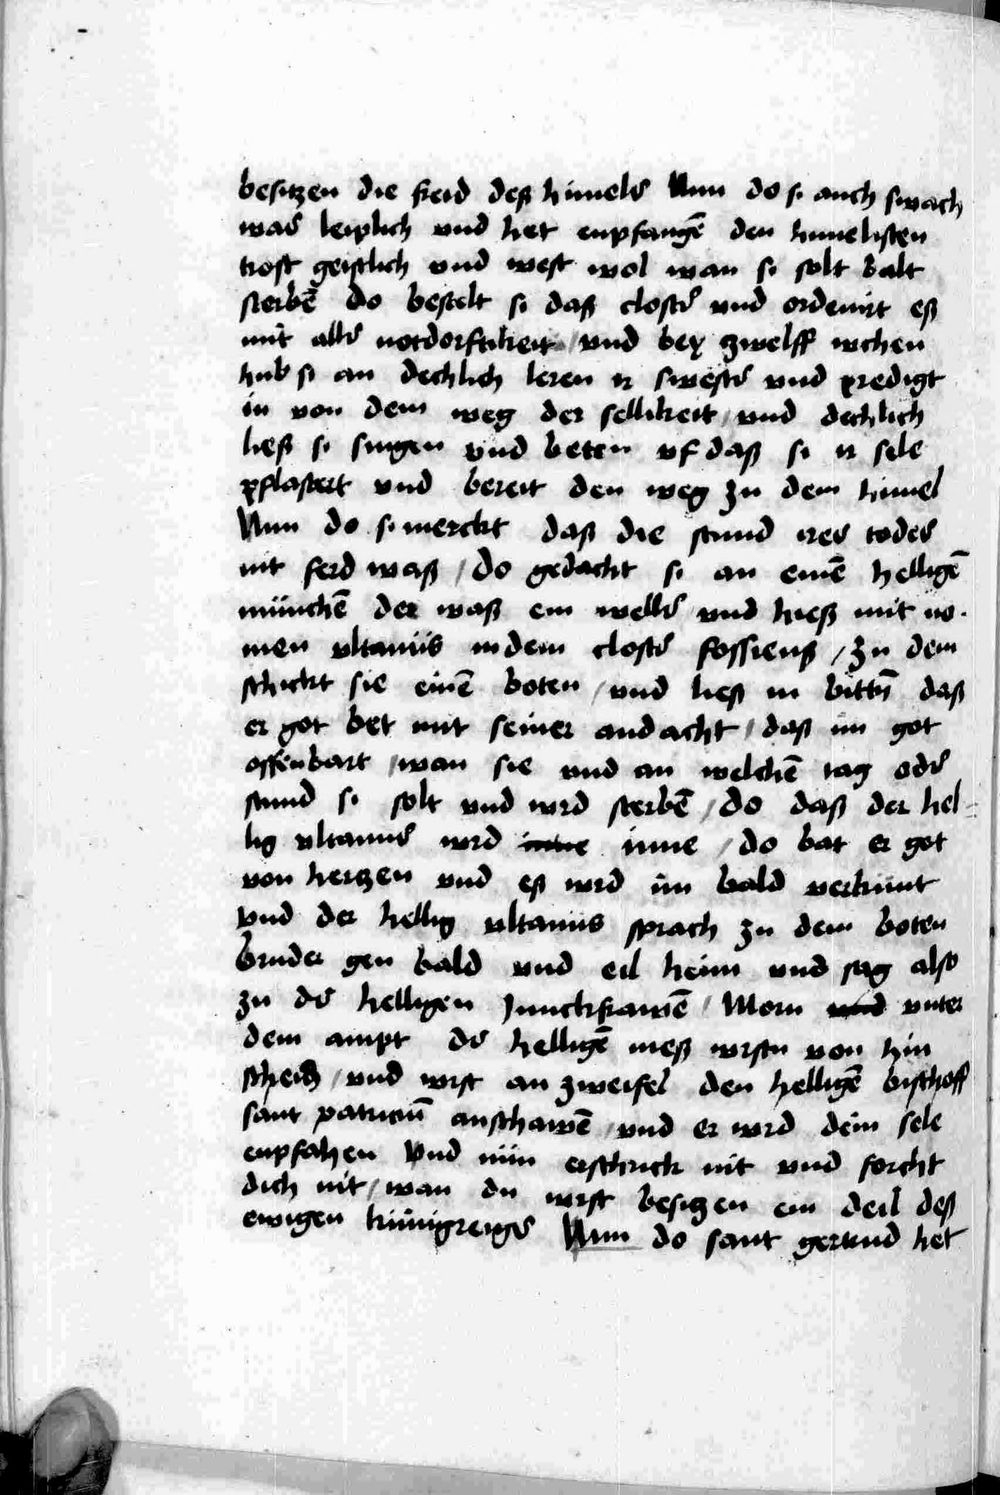 besitzen die freid deß himels Nun do si auch swach
was leiplich und het enpfangē den himelisten
trost geistlich und west wol wan si solt balt
sterbē do bestelt si daß closter und ordenirt eß
mit aller notdorftikeit / und bey zwelff wchen
hub si an dechlich leren ir swester und predigt
in von dem weg der sellikeit / und dechlich
ließ si singen und beten uf daß si ir sele
pflastert und bereit den weg zu dem himel
Nun do si merckt daß die stund ires todes
nit ferd waß / do gedacht si an einē helligē
münchē der waß ein weller und hieß mit no-
men ultanus in dem closter fossienß / zu dem
schickt sie einē boten / und ließ in bittn̄ daß
er got bet mit seiner andacht / daß im got
offenbart / wan sie und an welchē tag oder
stund si solt und wrd sterbē / do daß der hel-
lig ultanus wrd inne / do bat er got
von hertzen und eß wrd im bald verkünt
und der hellig ultanus sprach zu dem boten
bruder gen bald und eil heim und sag also
zu der helligen Junckfrawē / Morn unter
dem ampt der helligē meß wirstu von hin
scheid / und wrst an zweifel den helligē bischoff
sant patriciū anschawē / und er wrd dein sele
enpfahen Und nün erschrick nit und forcht
dich nit / wan du wrst besitzen ein deil deß
ewigen künigreichs Nun do sant gertrud het